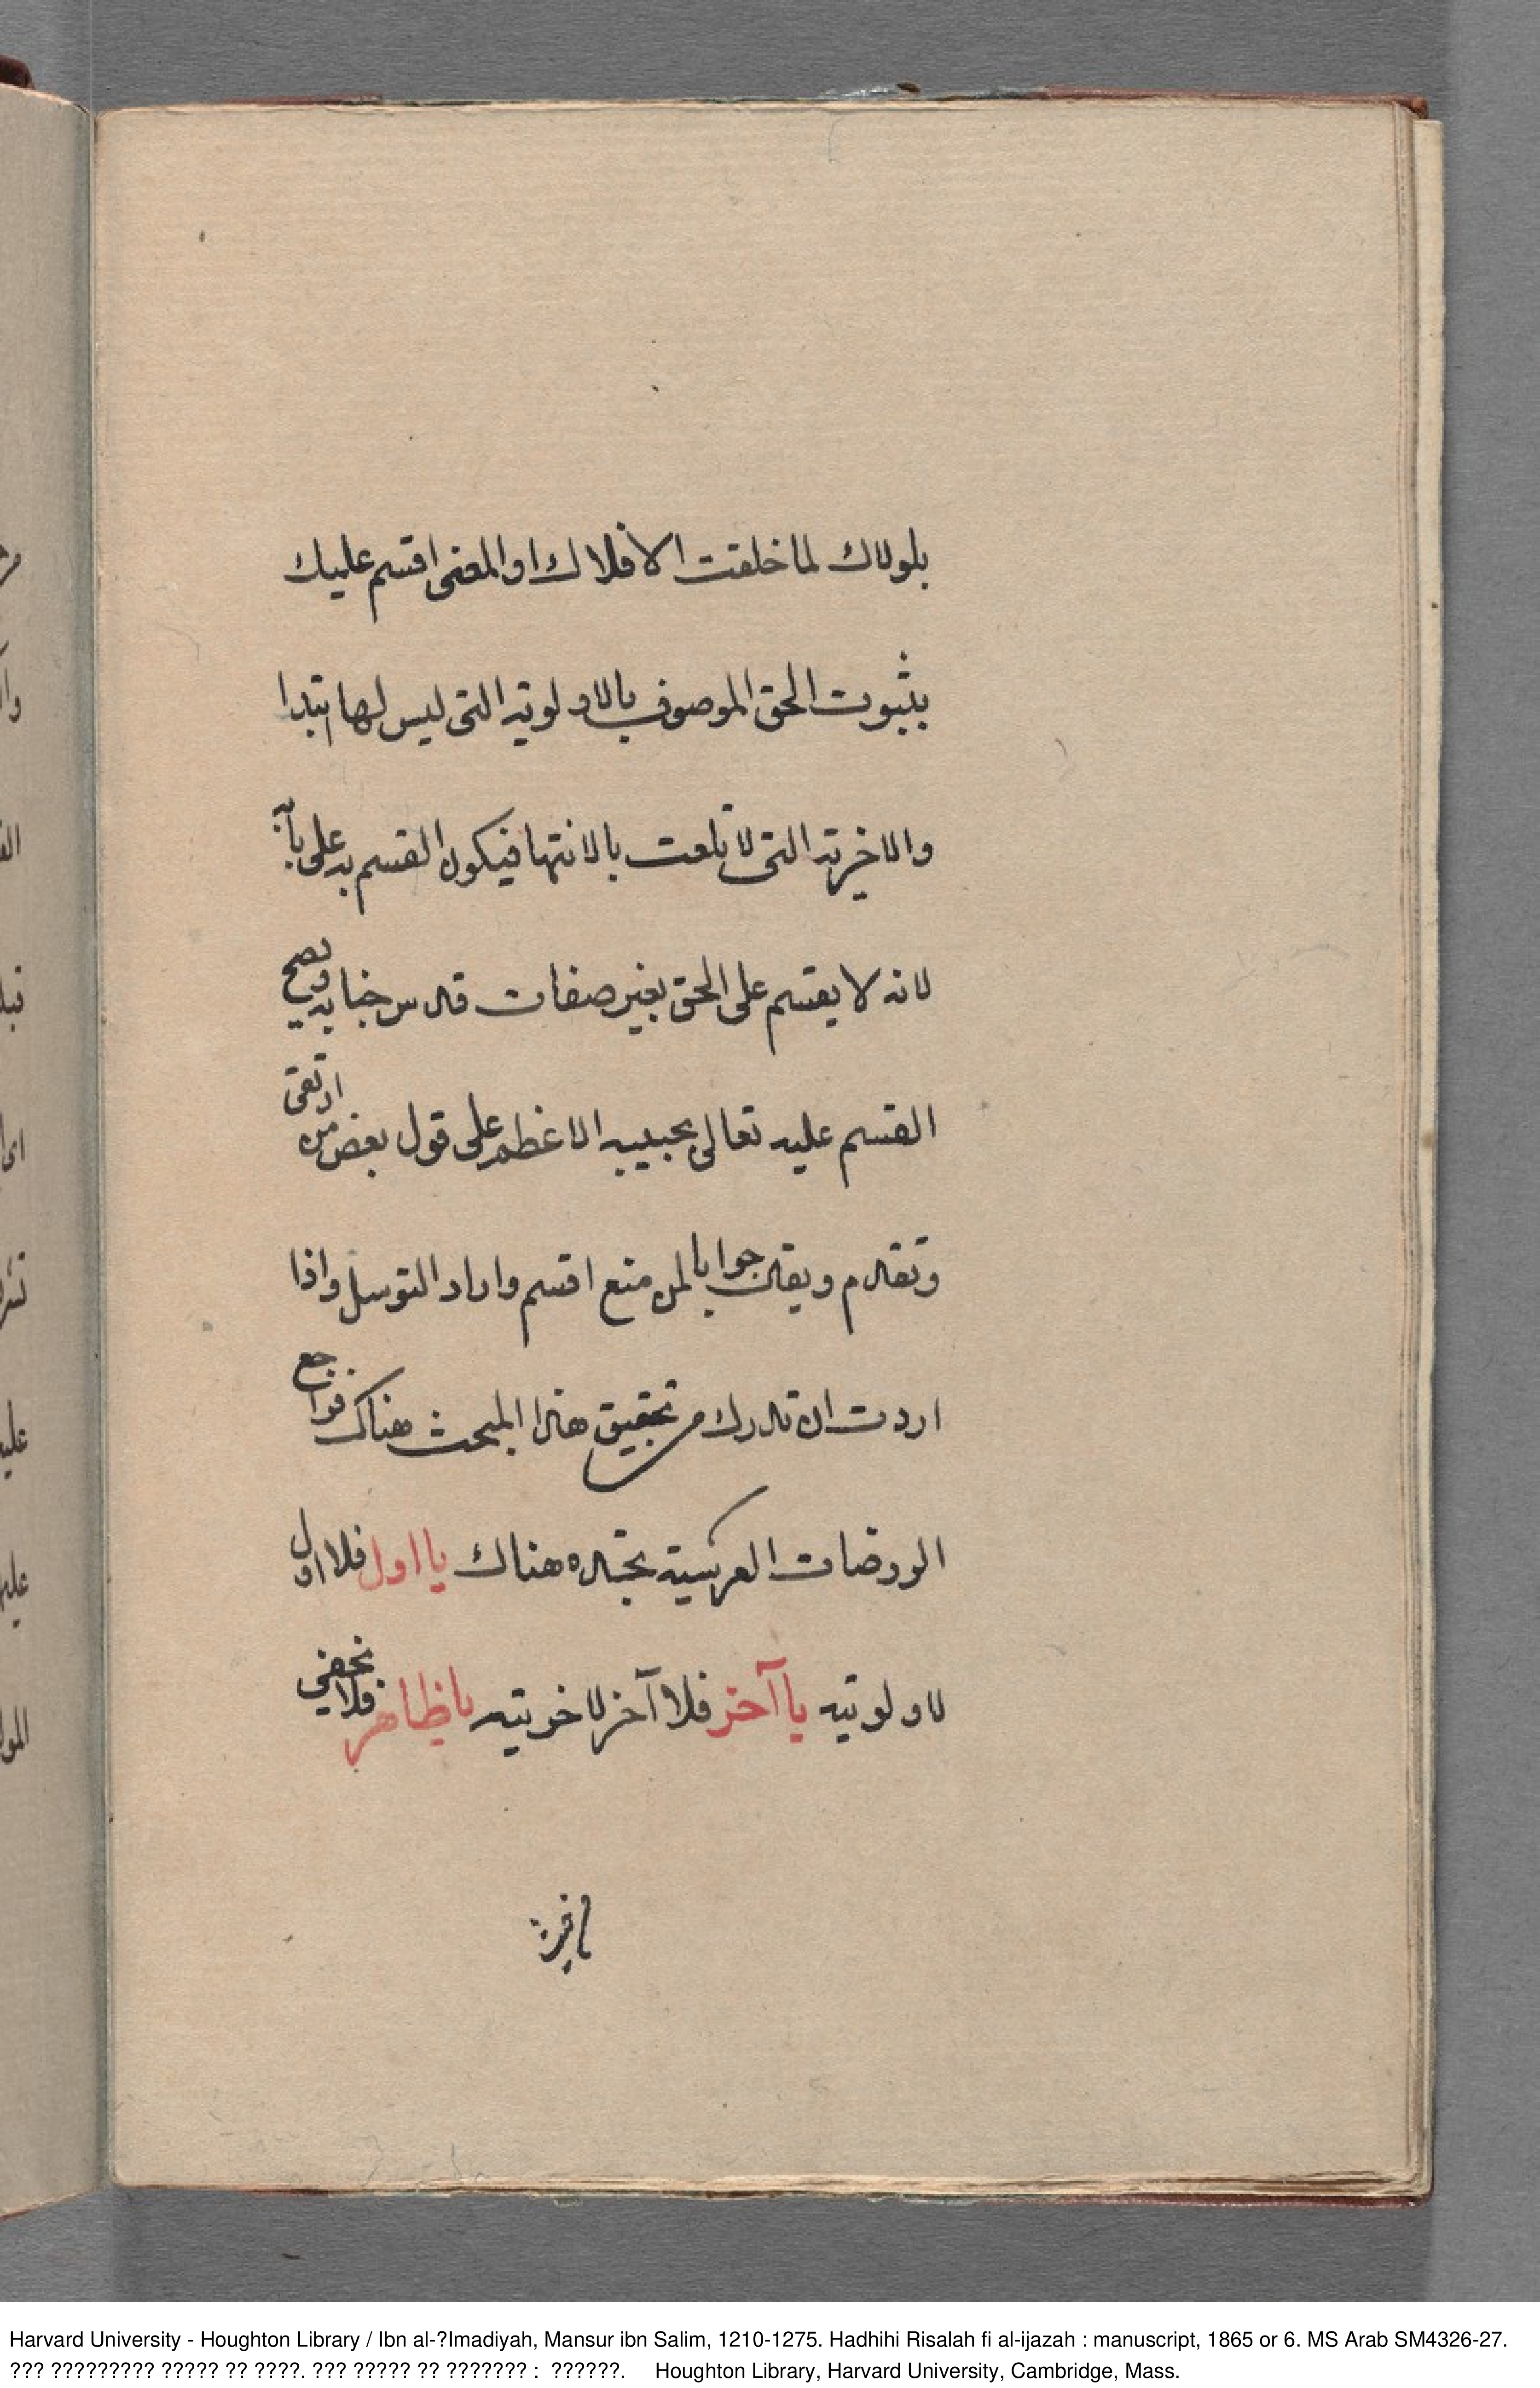 بلولاك لما خلقت الافلاك او المعنى اقسم عليك
بثبوت الحق الموصوف بالاولوية التى ليس لها ابتدا
والاخرية التى لا تلعت بالانتها فيكون القسم به على بابه
لانه لا يقسم على الحق بغير صفات قدس جنابه ويصح
القسم عليه تعالى بحبيبه الاعظم على قول بعض من ارتقى
وتقدم ويقال جوابا لمن منع اقسم واراد التوسل واذا
اردت ان تدرك تحقيق هذا المبحث هناك فراجع
الروضات العرشية تجده هناك يا اول فلا اول
لاولوتيه يا آخر فلا آخر لاخوتيه يا ظاهر فلا تخفي
Harvard University - Houghton Library / Ibn al-?Imadiyah, Mansur ibn Salim, 1210-1275. Hadhihi Risalah fi al-ijazah : manuscript, 1865 or 6. MS Arab SM4326-27.
??? ????????? ????? ?? ????. ??? ????? ?? ??????? : ??????. Houghton Library, Harvard University, Cambridge, Mass.